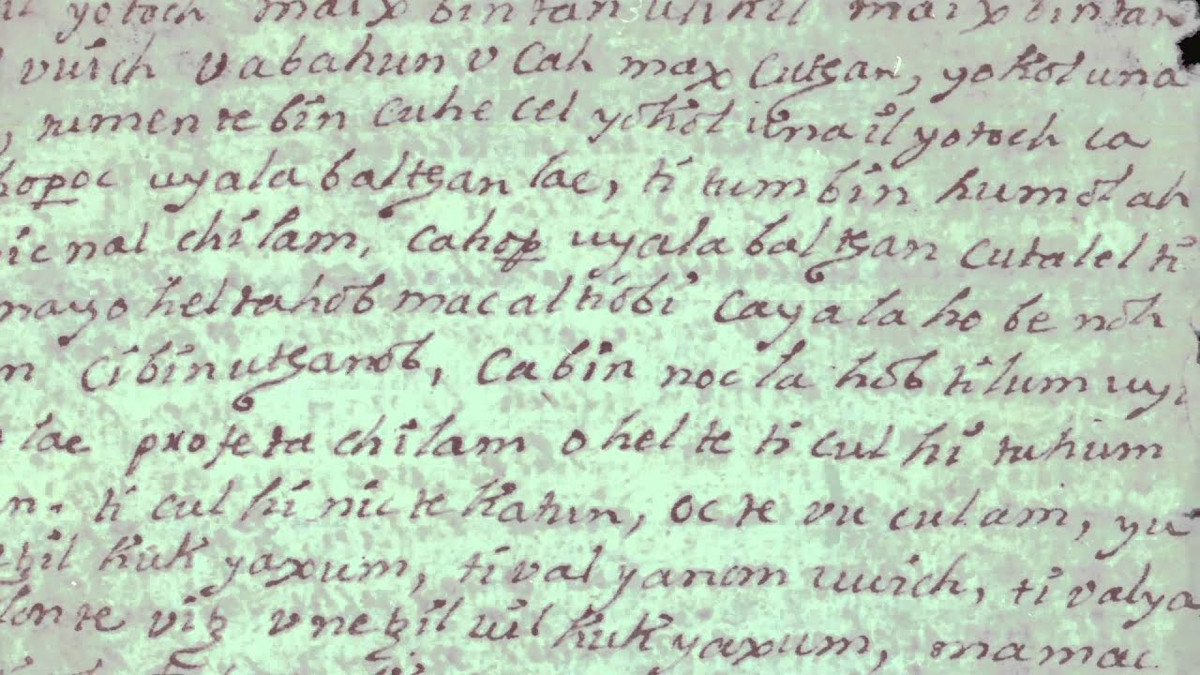 yotoch maix bin tan ulihil maix bin tan
vuich vabahun v cah max cuthan, yokol una
, tumen te bin cuhe cel yokol iuna il yotoch ca
hopoc uyala bal than lae, ti tum bin humol ah
icnal chilam, cahop uyala bal than cutalel ti
mayo hel tahob macalhobi cayala ho be noh
n cibin uthanob, cabin noc la hob tilum uy
lae profeta chilam o hel te ti cul hi tukum
n. ti cul hi nicte katun, oc te vu culam, yu
tzil kuk yaxum, tival yanom uuich, ti valya
lonte vitz vnetzil uil kuk yaxum, mamac